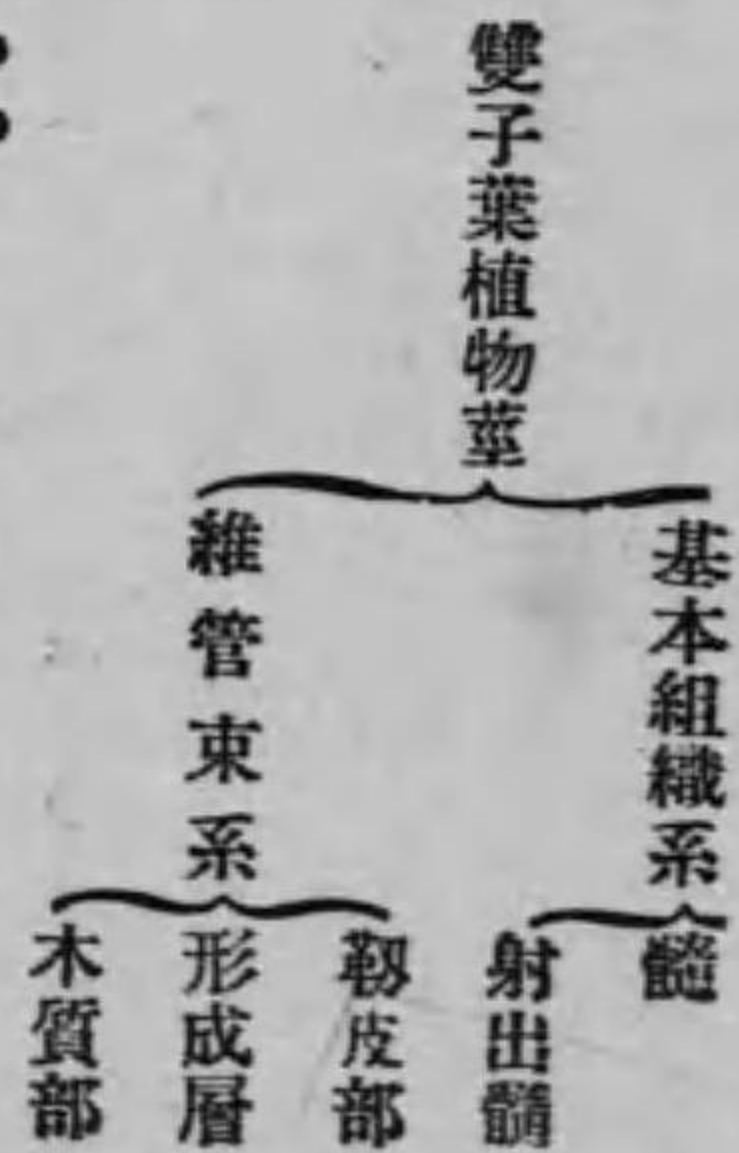 雙子葉植物莖
基本組織系
髓
射出髓
維管束系
靱皮部
形成層
木質部